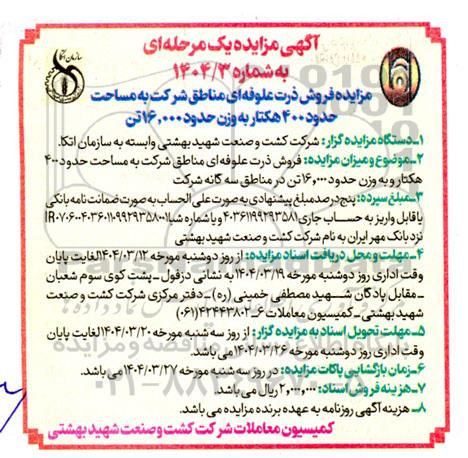 آگهی مزایده یک مرحله‌ای
به شماره ۱۴۰۴/۳
سازمان اتکا
مزایده فروش ذرت علوفه‌ای مناطق شرکت به مساحت
حدود ۴۰۰ هکتار به وزن حدود ۱۶,۰۰۰ تن
۱ـ دستگاه مزایده گزار: شرکت کشت و صنعت شهید بهشتی وابسته به سازمان اتکا.
۲ـ موضوع و میزان مزایده: فروش ذرت علوفه‌ای مناطق شرکت به مساحت حدود ۴۰۰
هکتار و به وزن حدود ۱۶,۰۰۰ تن در مناطق سه گانه شرکت
۳ـ مبلغ سپرده: پنج درصد مبلغ پیشنهادی به صورت علی الحساب به صورت ضمانت نامه بانکی
یا قابل واریز به حساب جاری ۴۰۳۶۱۱۹۹۲۹۳۵۸۱ و یا شماره شبا
نزد بانک مهر ایران به نام شرکت کشت و صنعت شهید بهشتی
۴ـ مهلت و محل دریافت اسناد مزایده: از روز دوشنبه مورخه ۱۴۰۴/۰۳/۱۲ لغایت پایان
وقت اداری روز دوشنبه مورخه ۱۴۰۴/۰۳/۱۹ به نشانی دزفول ـ پشت کوی سوم شعبان
ـ مقابل پادگان شهید مصطفی خمینی (ره) ـ دفتر مرکزی شرکت کشت و صنعت
شهید بهشتی ـ کمیسیون معاملات ۶ـ۴۲۴۴۳۸۰۲(۰۶۱)
۵ـ مهلت تحویل اسناد به مزایده گزار: از روز سه شنبه مورخه ۱۴۰۴/۰۳/۲۰ لغایت پایان
وقت اداری روز دوشنبه مورخه ۱۴۰۴/۰۳/۲۶ می باشد.
۶ـ زمان بازگشایی پاکات مزایده: در روز سه شنبه مورخه ۱۴۰۴/۰۳/۲۷ می باشد.
۷ـ هزینه فروش اسناد: ۲,۰۰۰,۰۰۰ ریال می باشد.
۸ـ هزینه آگهی روزنامه به عهده برنده مزایده می باشد.
کمیسیون معاملات شرکت کشت و صنعت شهید بهشتی